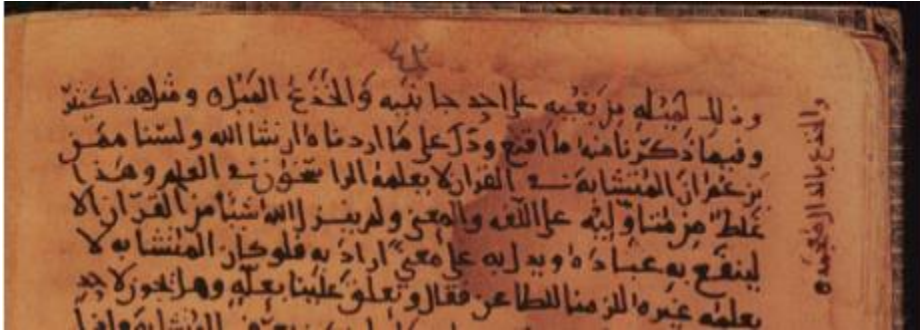 ٤٢
وذلك لميله من تعبه على احد جانبيه والخذع الميل ومثل هذا كثير
وفيما ذكرنا منه ما اقنع ودل على ما اردناه ان شا الله ولسنا ممن
يزعم ان المتشابه في القران لا يعلمه الراسخون في العلم وهذا
غلط من متاوليه على اللغه والمعنى ولم ينزل الله شيئا من القران الا
لينفع به عباده ويدل به على معنى اراده فلو كان المتشابه لا
يعلمه غيره للزمنا للطاعن مقال وتعلق علينا بعله وهل يجوز لاحد
المتشابه واذا
والخذع بالذال المعجمه